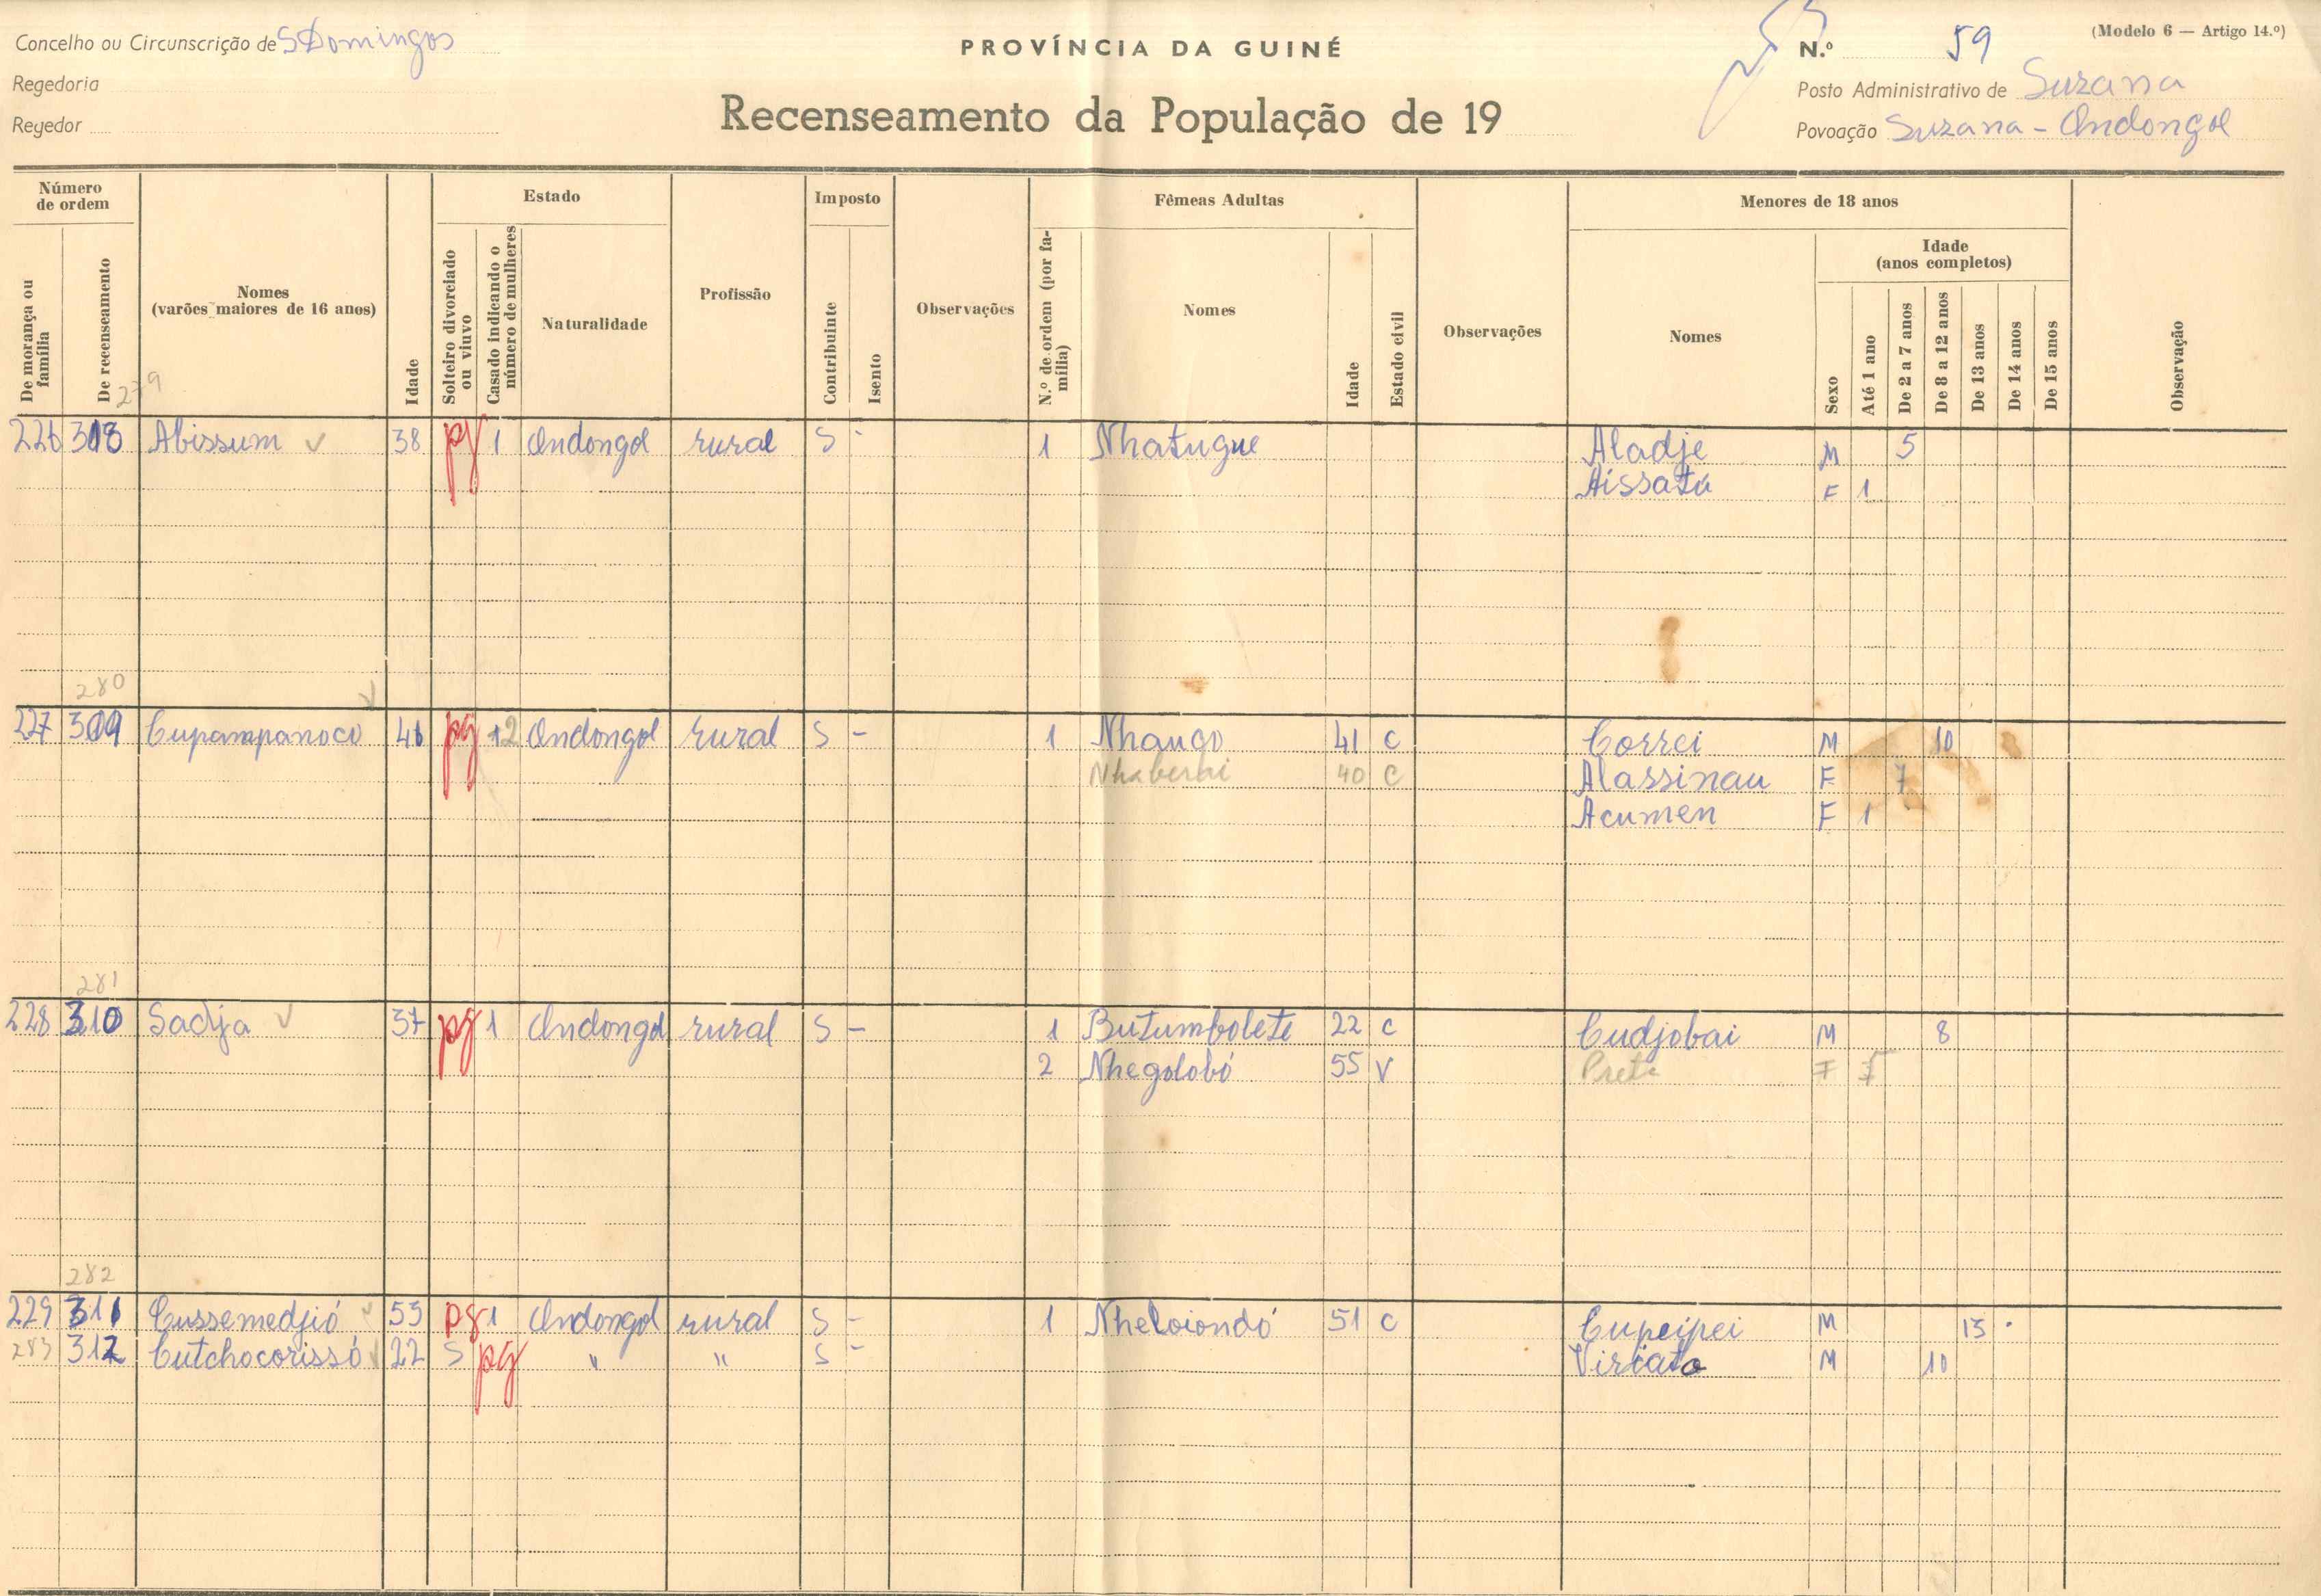 Concelho ou Circunscrição de S Domingos
PROVÍNCIA DA GUINÉ
N.º 59
(Modelo 6 — Artigo 14.º)
Regedoria
Posto Administrativo de Suzana
Regedor
Recenseamento da População de 19
Povoação Suzana - Ondongol
Número de ordem
Estado
Imposto
Fêmeas Adultas
Menores de 18 anos
De morança ou família
De recenseamento
Nomes (varões maiores de 16 anos)
Idade
Solteiro divorciado ou viuvo
Casado indicando o número de mulheres
Naturalidade
Profissão
Contribuinte
Isento
Observações
N.º de ordem (por família)
Nomes
Idade
Estado civil
Observações
Nomes
Sexo
Idade (anos completos)
Até 1 ano
De 2 a 7 anos
De 8 a 12 anos
De 13 anos
De 14 anos
De 15 anos
Observação
279
226 308 Abissum 38 pg 1 Ondongol rural S - 1 Nhatugue Aladje M 5
Aissatú F 1
280
227 309 Cupampanoco 46 pg 2 Ondongol rural S - 1 Nhango 41 C Correi M 10
40 C Alassinau F 7
Acumen F 1
281
228 310 Sadja 37 pg 1 Ondongol rural S - 1 Butumbolete 22 C Cudjobai M 8
2 Nhegolobó 55 V Preta F
282
229 311 Cussemedjió 55 pg 1 Ondongol rural S - 1 Nheloiondó 51 C Cupeipei M 13
283 312 Cutchocorissó 22 S pg " " S - Viriato M 10